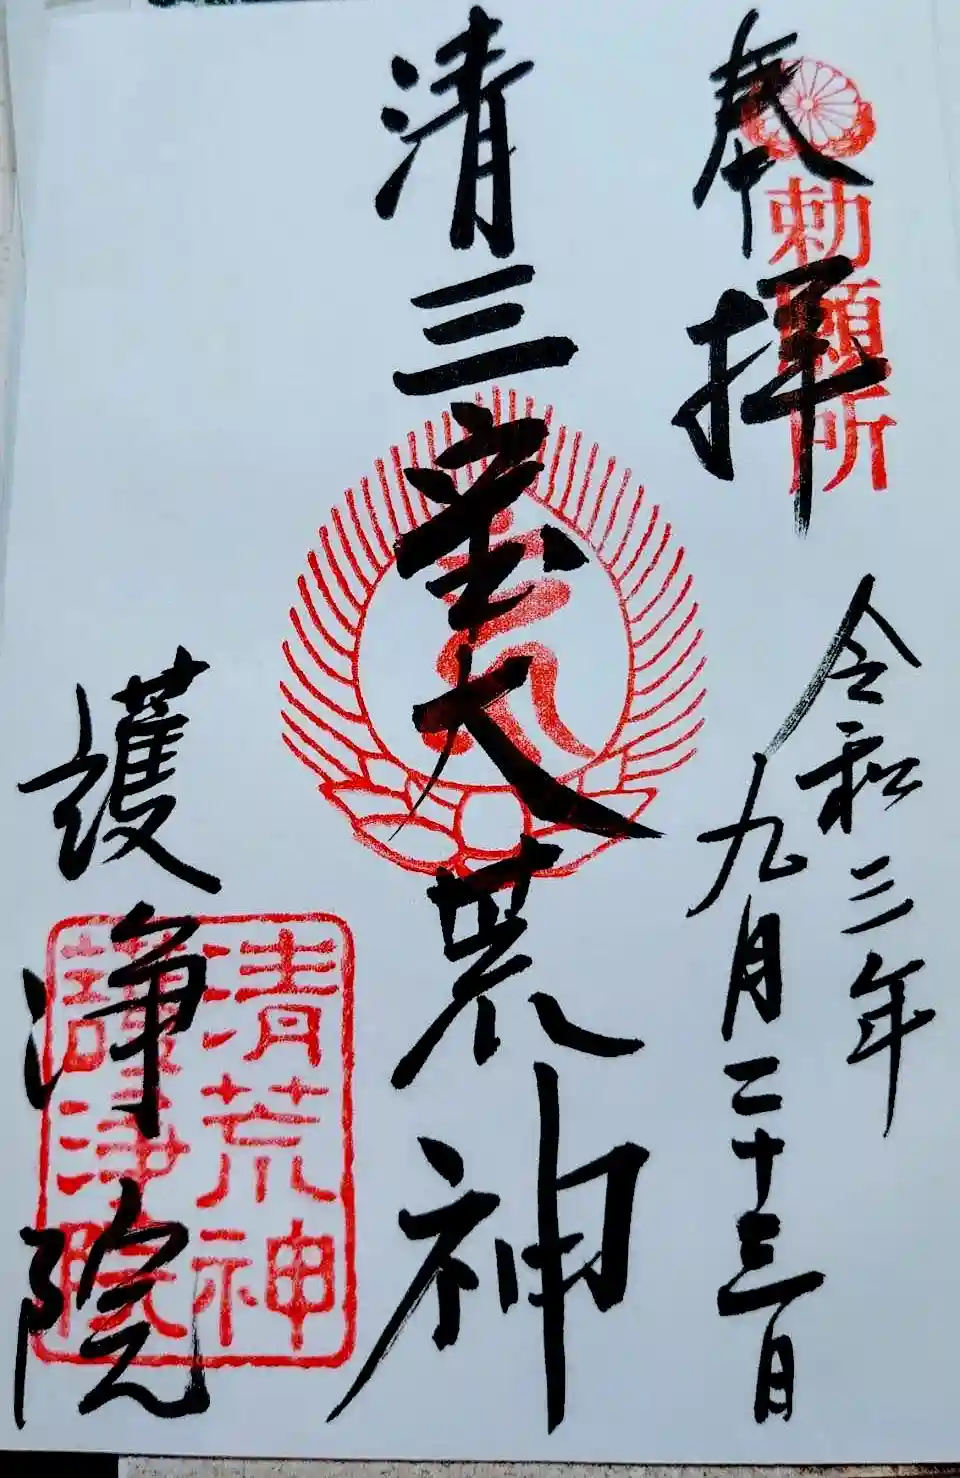 奉拝
勅願所
令和三年
九月二十三日
清三宝大荒神
護浄院
清荒神
護浄院